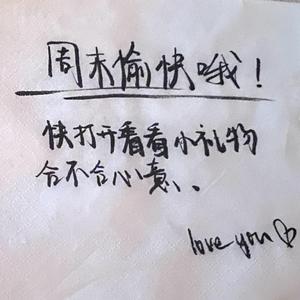 周末愉快哦！
快打开看看小礼物
合不合心意、、
love you